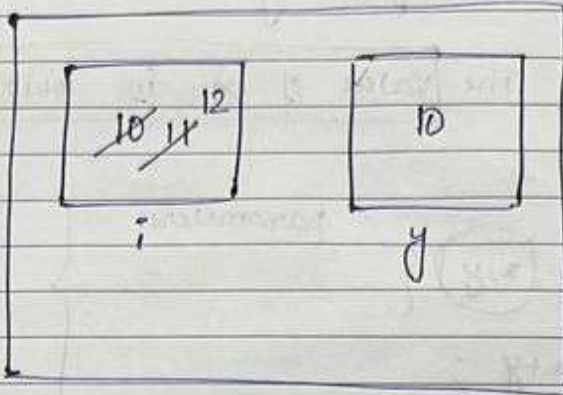 10 11 12
10
i
y